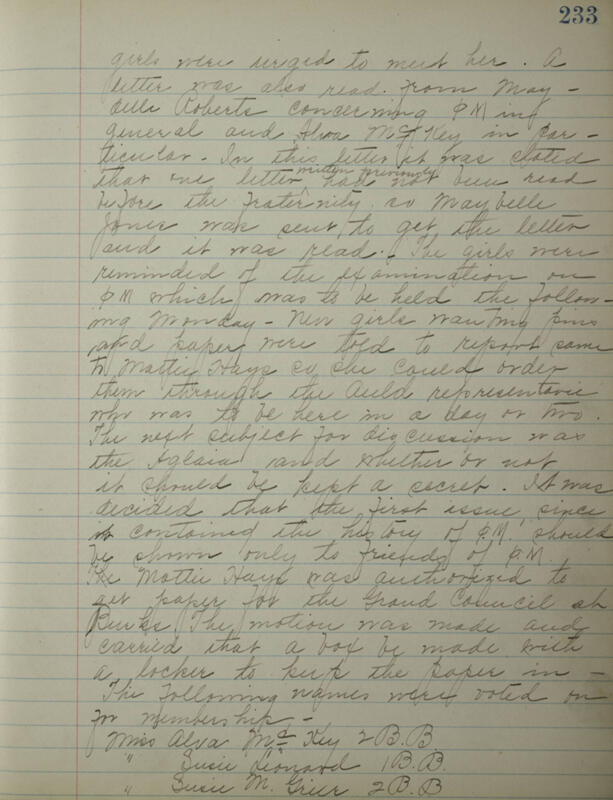 233
girls were urged to meet her. A
letter was also read from May-
belle Roberts concerning ΦM in
general and Alva McKey in par-
ticular. In this letter it was stated
that one letter written previously had not been read
before the fraternity so Maybelle
Jones was sent to get the letter
and it was read. The girls were
reminded of the examination on
ΦM which was to be held the follow-
ing Monday - New girls wanting pins
and paper were told to report same
to Mattie Hays so she could order
them through the Auld representative
who was to be here in a day or two.
The next subject for discussion was
the Aglaia and whether or not
it should be kept a secret. It was
decided that the first issue, since
it contained the history of Φ.M. should
be shown only to friends of Φ.M.
The Mattie Hays was authorized to
get paper for the Grand Council at
Burks. The motion was made and
carried that a box be made with
a locker to keep the paper in -
The following names were voted on
for membership -
Miss Alva McKey 2 B.B
" Susie Leonard 1 B.B.
" Susie M. Grier 2 B.B